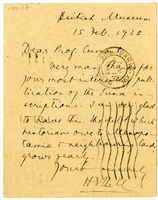 British Museum
15 Feb. 1925
Dear Prof. Cumont
Very many thanks for
your most interesting pub-
lication of the Susa in-
scriptions. I am very glad
to have this. The debt which
historians owe to Mesopo-
tamia & neighbouring lands
grows yearly.
Yours